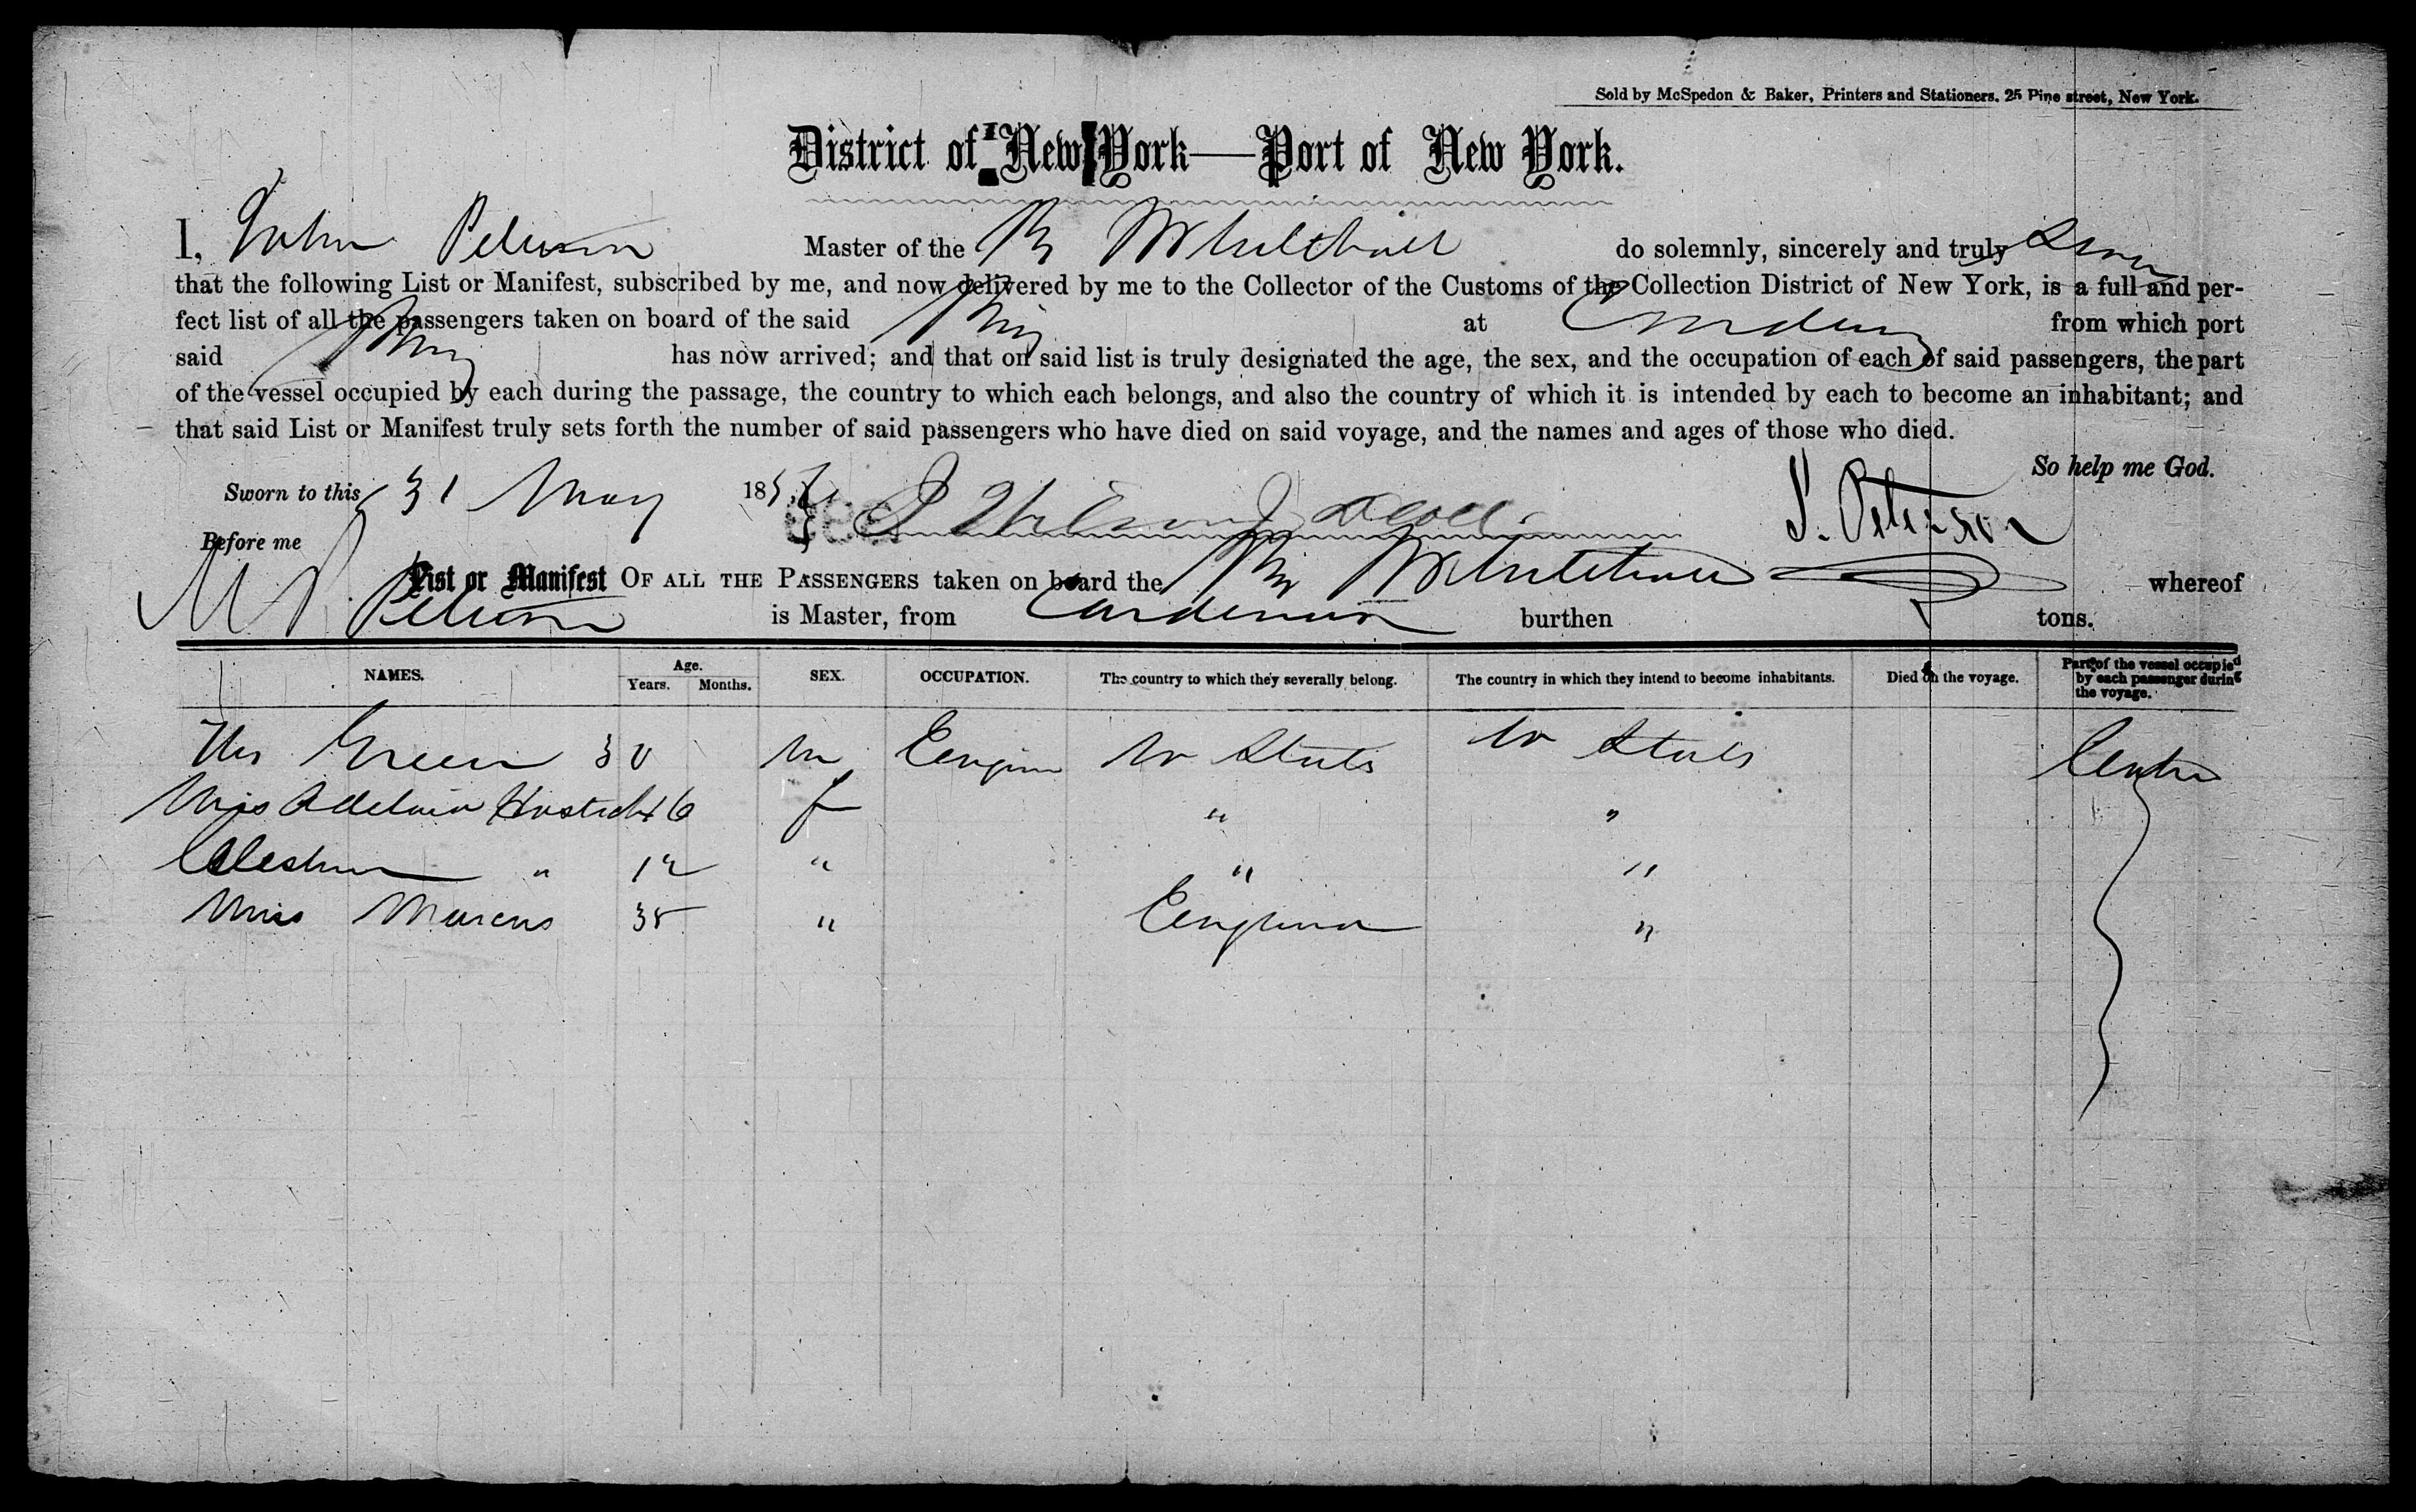 Sold by McSpedon & Baker, Printers and Stationers. 25 Pine street, New York.
District of New York—Port of New York.
I, John Peterson Master of the Br Whitehall do solemnly, sincerely and truly Swear
that the following List or Manifest, subscribed by me, and now delivered by me to the Collector of the Customs of the Collection District of New York, is a full and per-
fect list of all the passengers taken on board of the said Brig at Cardenas from which port
said Brig has now arrived; and that on said list is truly designated the age, the sex, and the occupation of each of said passengers, the part
of the vessel occupied by each during the passage, the country to which each belongs, and also the country of which it is intended by each to become an inhabitant; and
that said List or Manifest truly sets forth the number of said passengers who have died on said voyage, and the names and ages of those who died.
So help me God.
Sworn to this 31 May 185 J. Peterson
Before me
List or Manifest OF ALL THE PASSENGERS taken on board the Brig Whitehall whereof
Peterson is Master, from Cardenas burthen tons.
NAMES. Age. Years. Months. SEX. OCCUPATION. The country to which they severally belong. The country in which they intend to become inhabitants. Died on the voyage. Part of the vessel occupied by each passenger during the voyage.
Green 30 m U States U States
Miss 16 f " "
" 12 " " "
Marcus 35 " England "